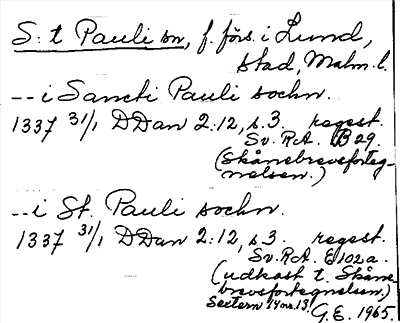 S:t Pauli sn, f. förs. i Lund,
stad, Malm. l.
-- i Sancti Pauli sochn.
1337 31/1 DDan 2:12, s.3. regest.
Sv. R.A. B 29.
(Skånebrevsforteg-
nelsen.)
-- i St. Pauli sochn.
1337 31/1 DDan 2:12, s.3. regest.
Sv. R.A. E 102a.
(udkast t. Skåne
brevsfortegnelsen.)
Sextern 14 nr. 13.
G.E. 1965.